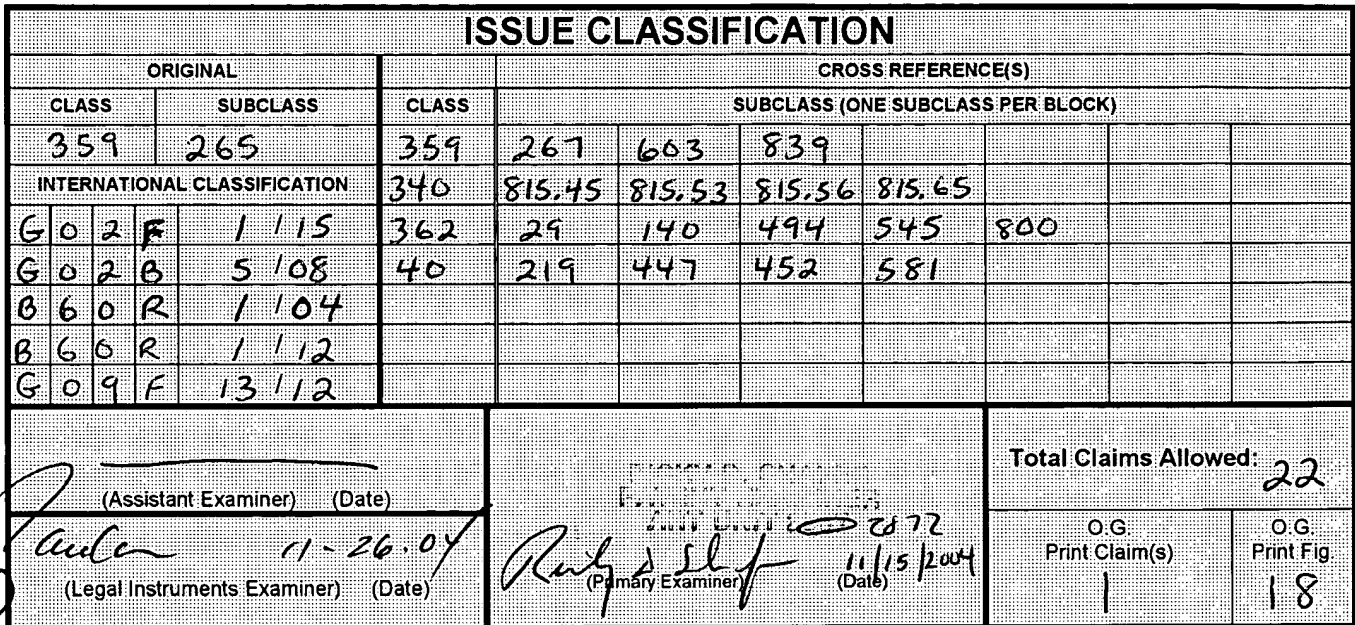 ISSUE CLASSIFICATION
ORIGINAL CROSS REFERENCE(S)
CLASS SUBCLASS CLASS SUBCLASS (ONE SUBCLASS PER BLOCK)
359 265 359 267 603 839
INTERNATIONAL CLASSIFICATION 340 815.45 815.53 815.56 815.65
G 0 2 F 1 / 15 362 29 140 494 545 800
G 0 2 B 5 / 08 40 219 447 452 581
B 6 0 R 1 / 04
B 6 0 R 1 / 12
G 0 9 F 13 / 12
(Assistant Examiner) (Date)
11-26-04
(Legal Instruments Examiner) (Date)
2872
11/15/2004
(Primary Examiner) (Date)
Total Claims Allowed: 22
O.G. Print Claim(s)
1
O.G. Print Fig.
18